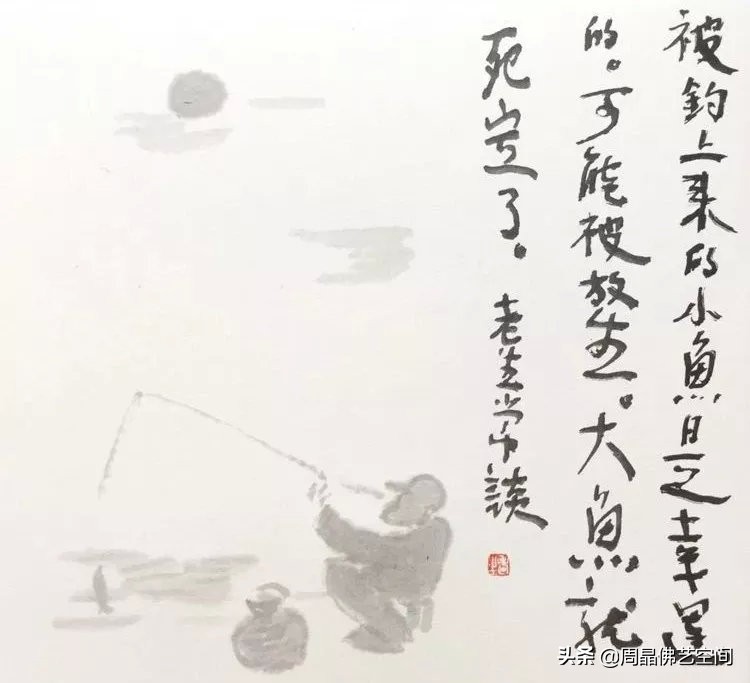 被釣上来的小魚是幸運
的。可能被放生。大魚就
死定了。
老常談
头条 @周晶佛艺空间